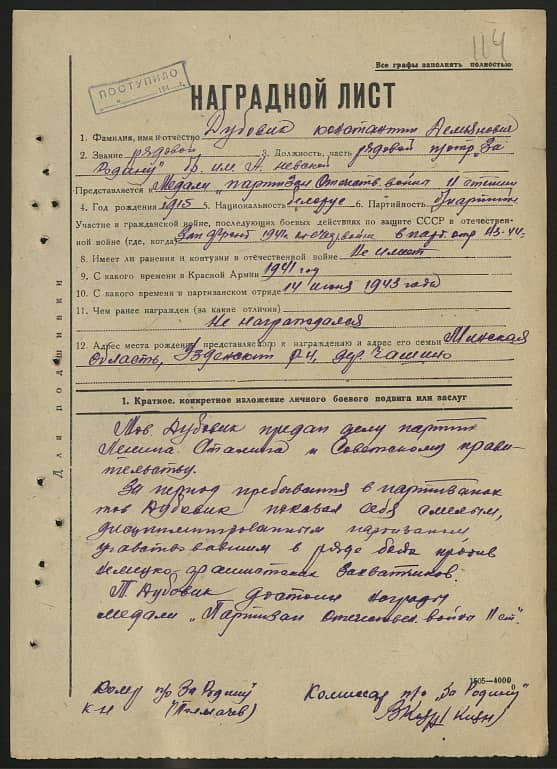 114
Все графы заполнять полностью
ПОСТУПИЛО
НАГРАДНОЙ ЛИСТ
1. Фамилия, имя и отчество Дубовик Константин Демьянович
2. Звание рядовой 3. Должность, часть рядовой п/отр. „За
Родину" бр. им. А. Невский
Представляется к Медали „партизан Отечеств. войны II степени
4. Год рождения 1915 5. Национальность белорус 6. Партийность б/партийн
Участие в гражданской войне, последующих боевых действиях по защите СССР и отечествен-
ной войне (где, когда) Зап фронт 1941 в парт. отр 43-44г.
8. Имеет ли ранения и контузии в отечественной войне Не имеет
9. С какого времени в Красной Армии 1941 год
10. С какого времени в партизанском отряде 14 июня 1943 года
11. Чем ранее награжден (за какие отличия)
Не награждался
12. Адрес места рождения представляемого к награждению и адрес его семьи Минская
область, Узденский р-н, дер. Чашино
Для подшивки
1. Краткое, конкретное изложение личного боевого подвига или заслуг
Тов. Дубовик предан делу партии
Ленина Сталина и Советскому прави-
тельству.
За период пребывания в партизанах
тов Дубовик показал себя смелым,
дисциплинированным партизаном
участвовавшим в ряде боев против
немецко-фашистских захватчиков.
Т Дубовик достоин награды
медали „Партизан отечествен. войны II ст".
1505—4000
Комиссар п/о „За Родину"
п/о За Родину"
к-н (Толмачев)